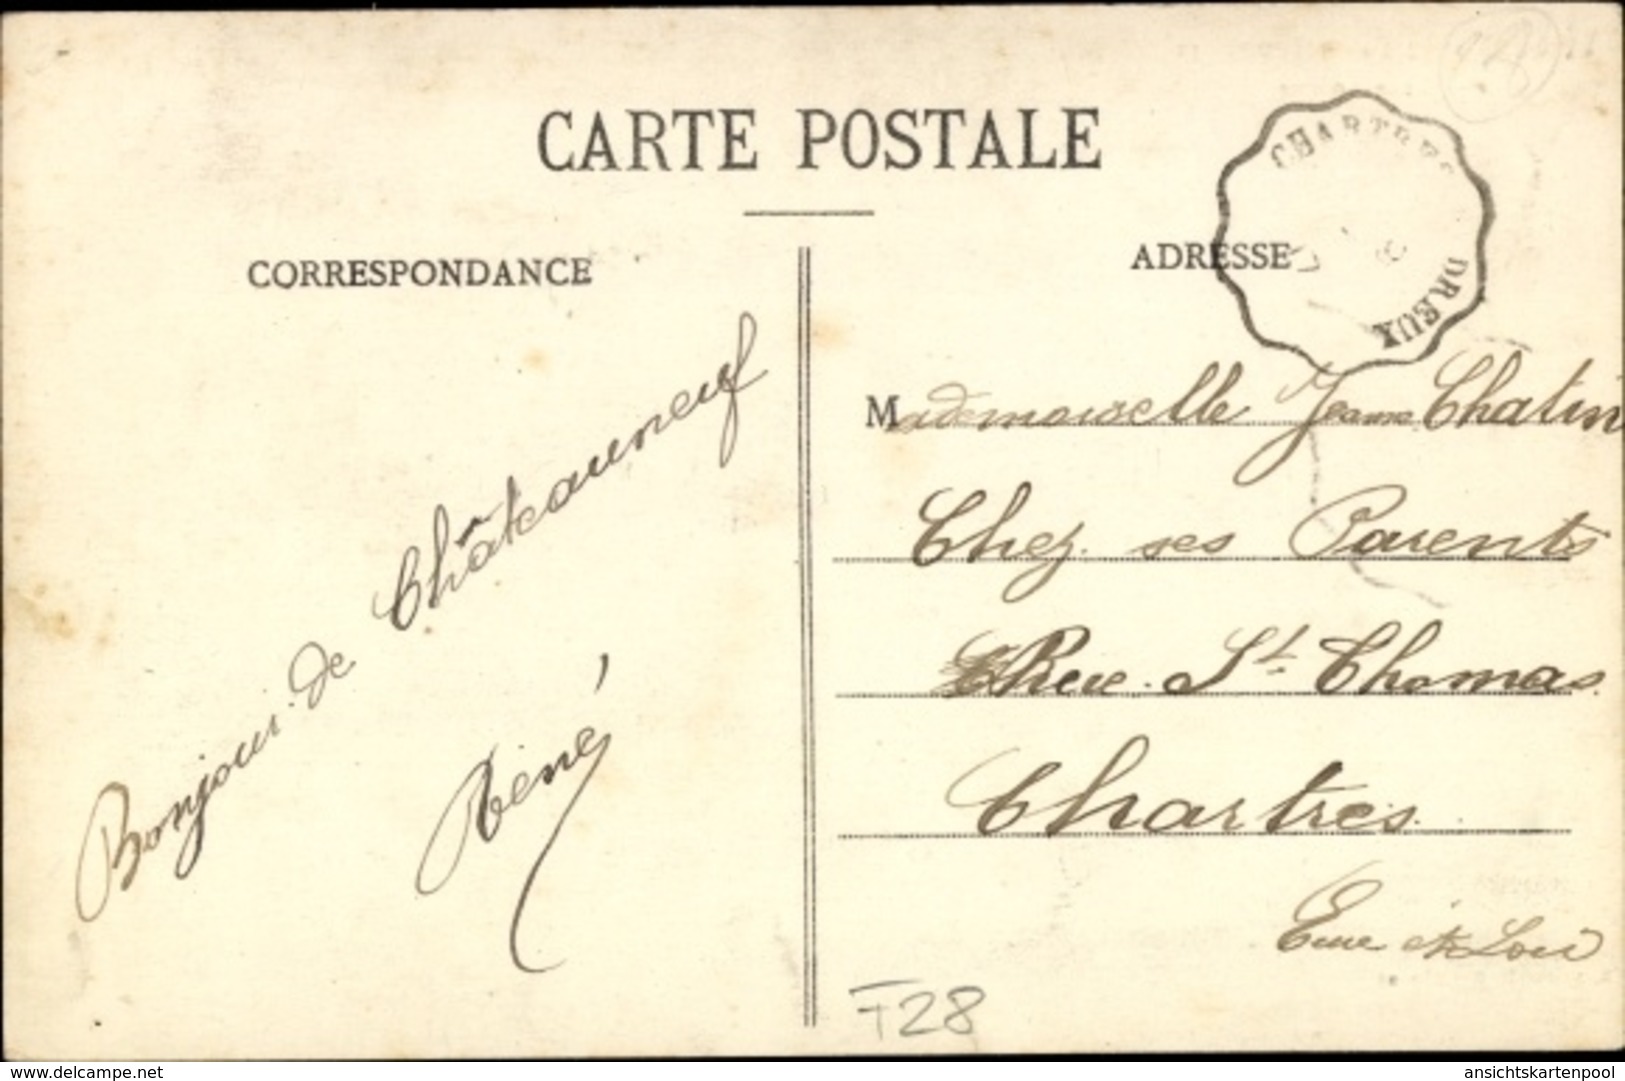 CARTE POSTALE
CHARTRES
DREUX
CORRESPONDANCE
ADRESSE
Bonjour de Châteauneuf
René
Mademoiselle Jeanne Chatin
Chez ses Parents
Rue St Thomas
Chartres
Eure et Loir
F28
www.delcampe.net
ansichtskartenpool